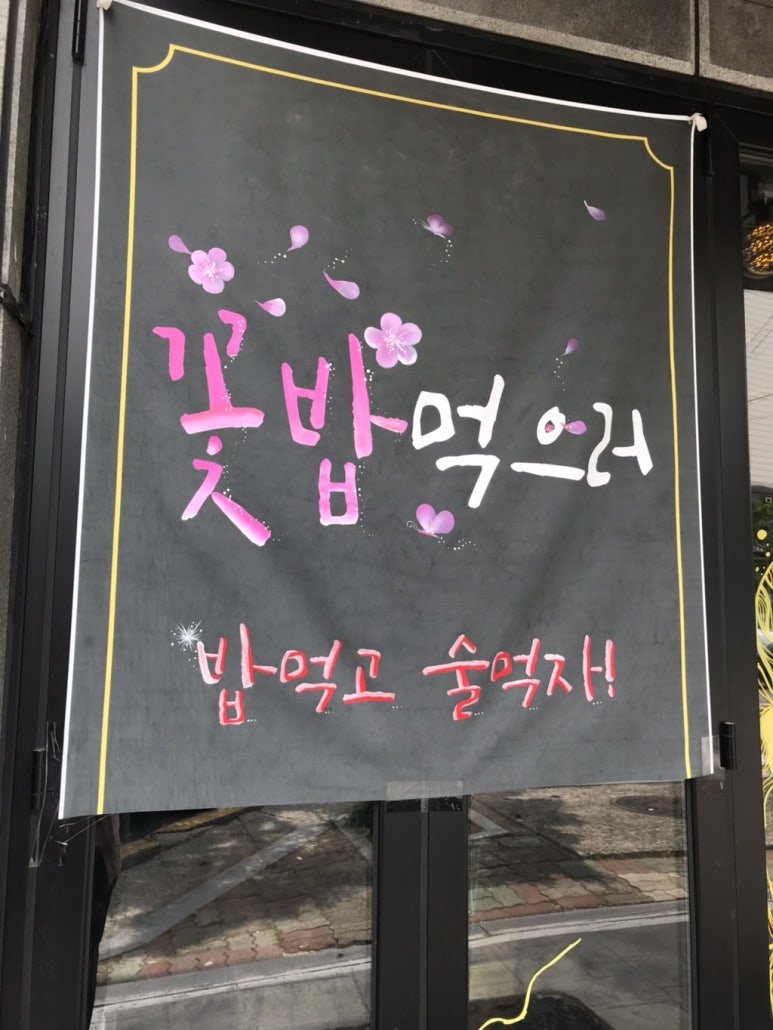 꽃밥 먹으러
밥먹고 술먹자!